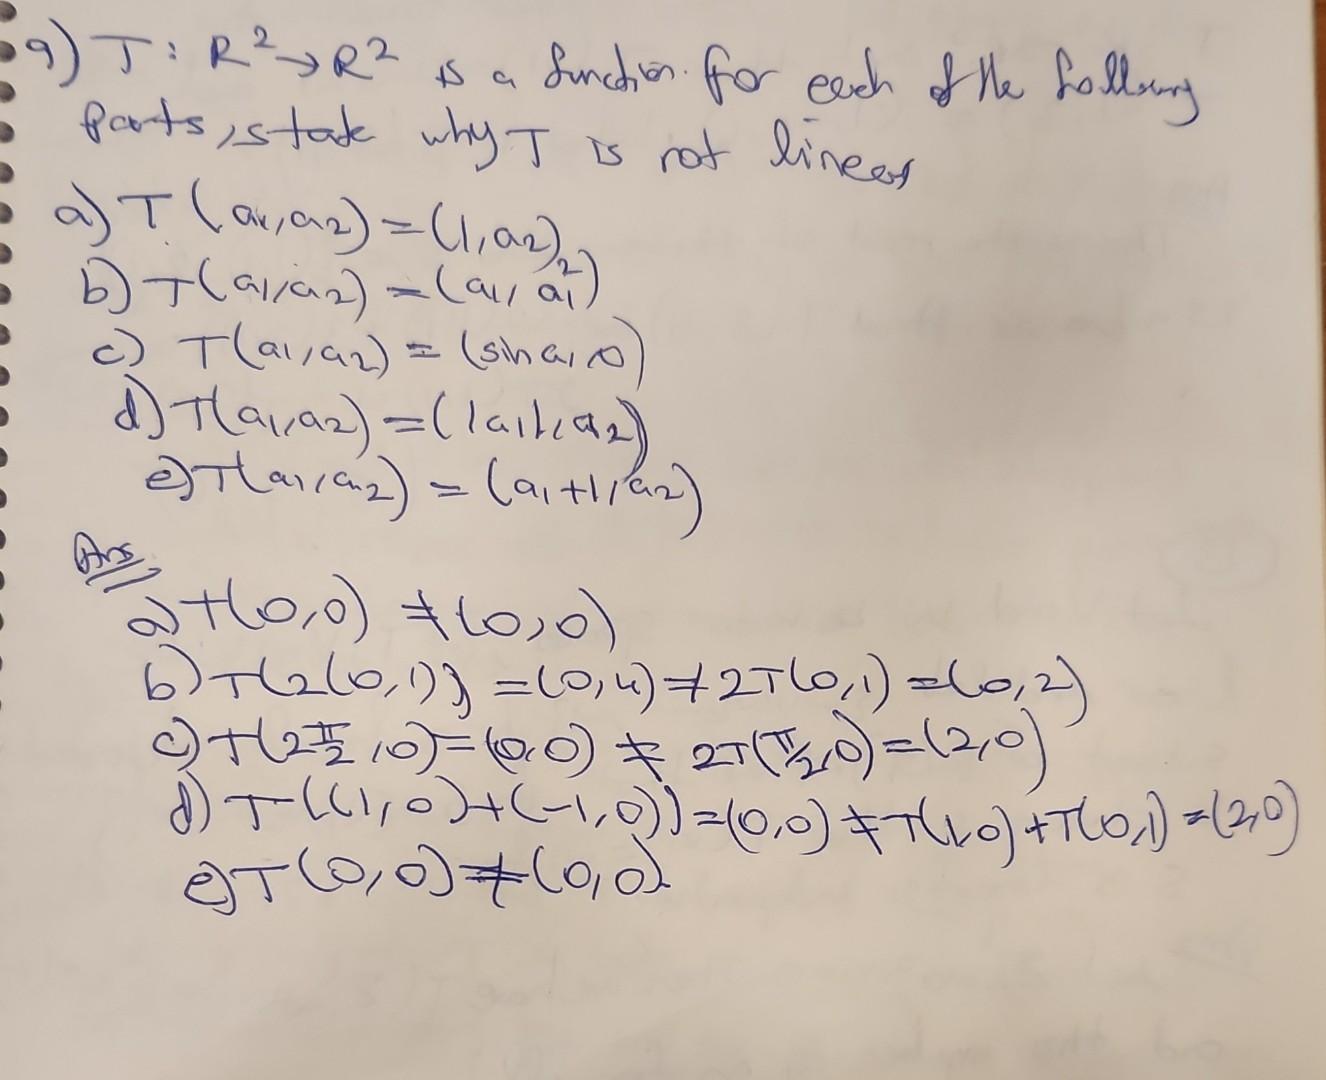 9) T: R² → R² is a function. for each of the following
parts, state why T is not linear
a) T(a1, a2) = (1, a2)
b) T(a1, a2) = (a1, a1²)
c) T(a1, a2) = (sin a1, 0)
d) T(a1, a2) = (|a1|, a2)
e) T(a1, a2) = (a1+1, a2)
Ans,
a) T(0,0) ≠ (0,0)
b) T(2(0,1)) = (0,4) ≠ 2T(0,1) = (0,2)
c) T(2π/2, 0) = (0,0) ≠ 2T(π/2, 0) = (2,0)
d) T((1,0)+(-1,0)) = (0,0) ≠ T(1,0) + T(0,1) = (2,0)
e) T(0,0) ≠ (0,0)